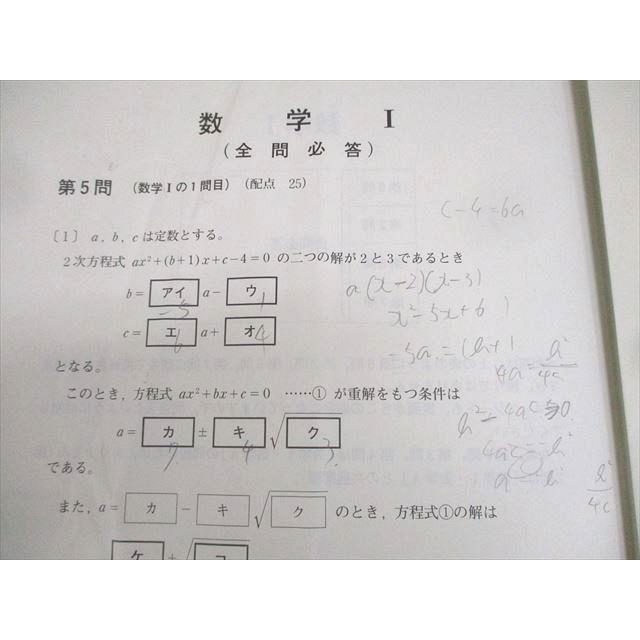 数 学 I
(全 問 必 答)
第5問 (数学Iの1問目) (配点 25)
c-4=6a
〔1〕 a, b, c は定数とする。
2次方程式 ax²+(b+1)x+c-4=0 の二つの解が2と3であるとき
a(x-2)(x-3)
b= アイ a- ウ
-5 1
x²-5x+6
c= エ a+ オ
6 4
-5a=(b+1
となる。
このとき, 方程式 ax²+bx+c=0 ……① が重解をもつ条件は
a= カ ± キ √ ク
7 4 3
である。
また, a= カ - キ √ ク のとき, 方程式①の解は
ケ + √ コ